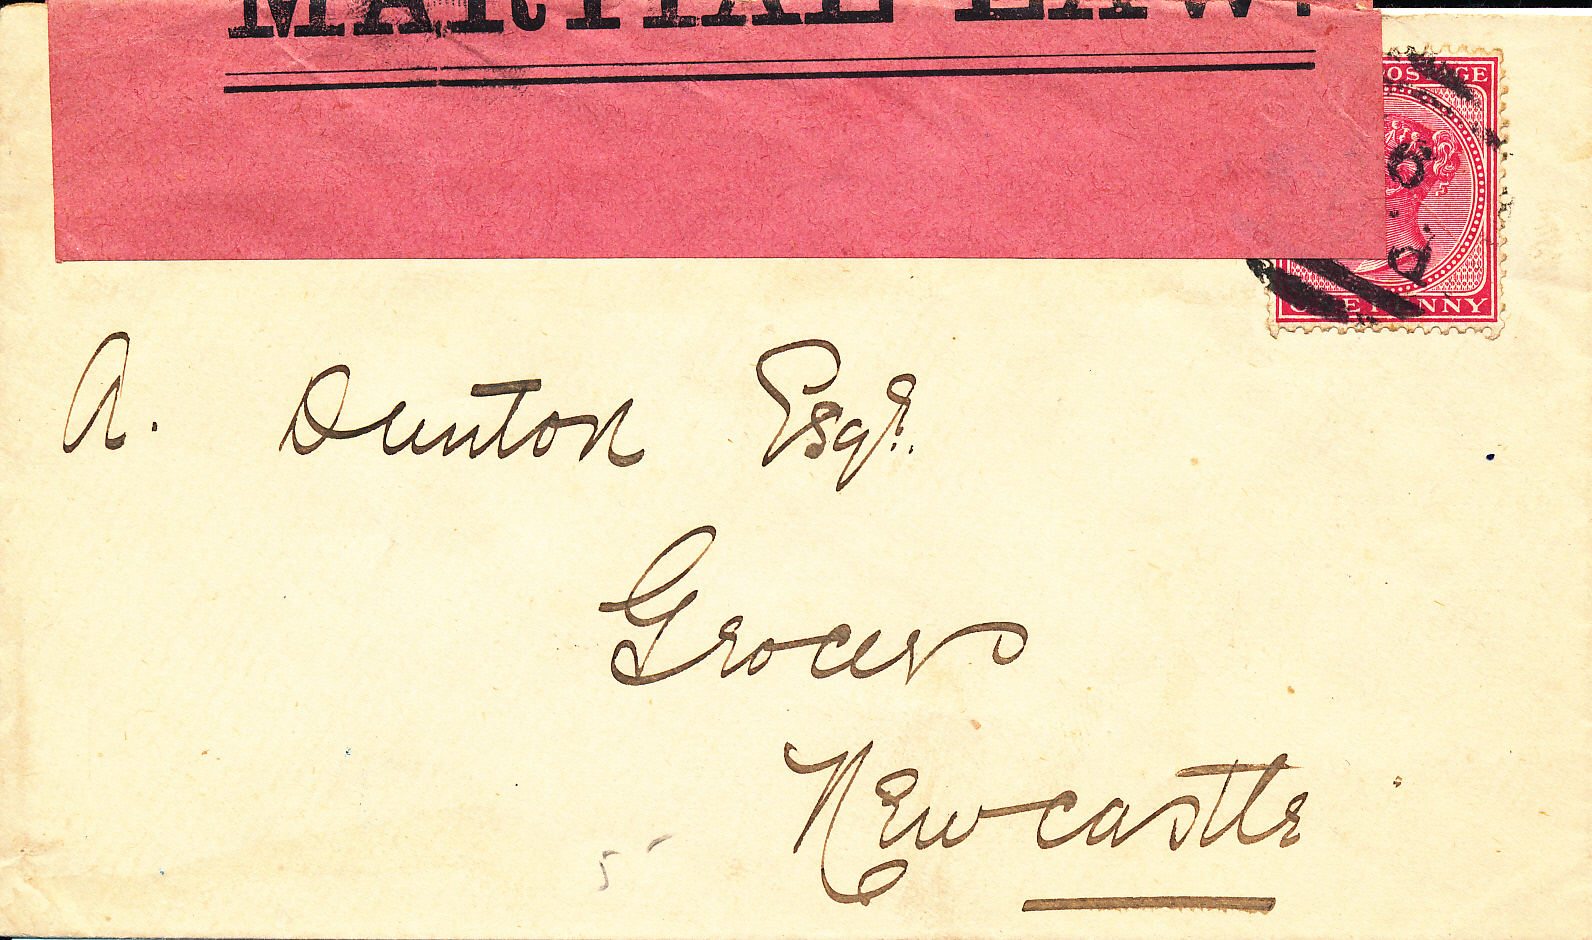 MARTIAL LAW.
POSTAGE
P. 6
ONE PENNY
A. Dunton Esqr.
Grocer
Newcastle
5